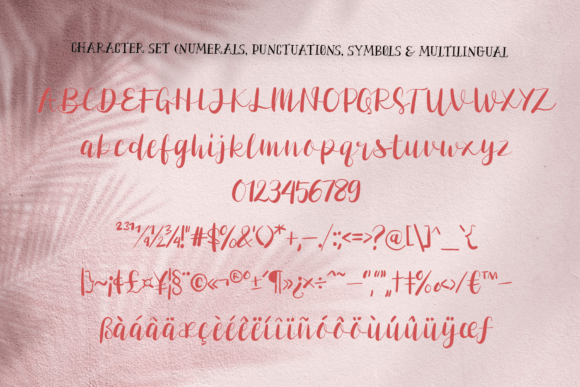 CHARACTER SET (NUMERALS, PUNCTUATIONS, SYMBOLS & MULTILINGUAL
ABCDEFGHIJKLMNOPQRSTUVWXYZ
abcdefghijklmnopqrstuvwxyz
0123456789
²³¹¼½¾!"#$%&'()*+,-./:;<=>?@[\]^_`{
|}~¡¢£¤¥¦§¨©«¬®°±´¶»¿×÷ˆ˜–‘‚“”„†‡‰‹›/€™−
ßàáâãäæçèéêëìíîïñóôöùúûüÿœƒ